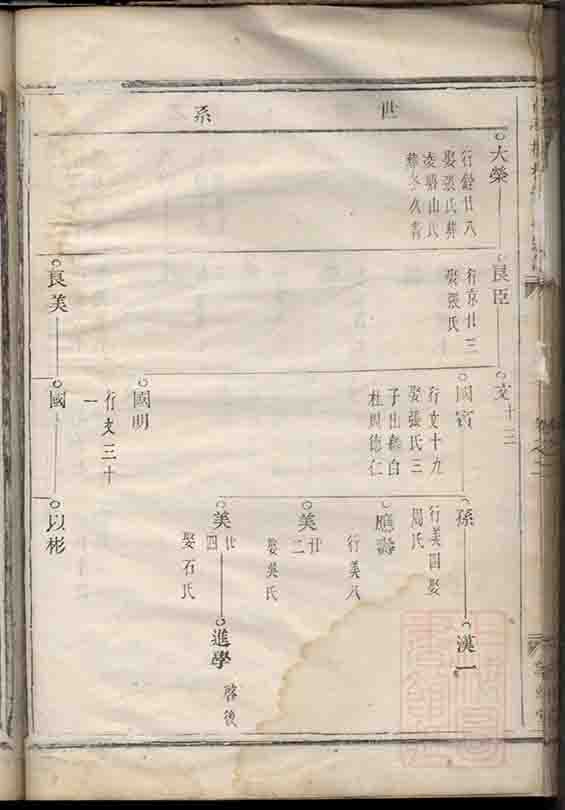 世系
大榮
行銓廿八
娶張氏葬
良臣
行京廿三
娶張氏
文十三
國賓
行文十九
娶張氏三
國明
行文三十
一
孫
行美四娶
周氏
應壽
行美八
美廿二
娶吳氏
美廿四
娶石氏
漢一
進學
啓後
良美
國
以彬